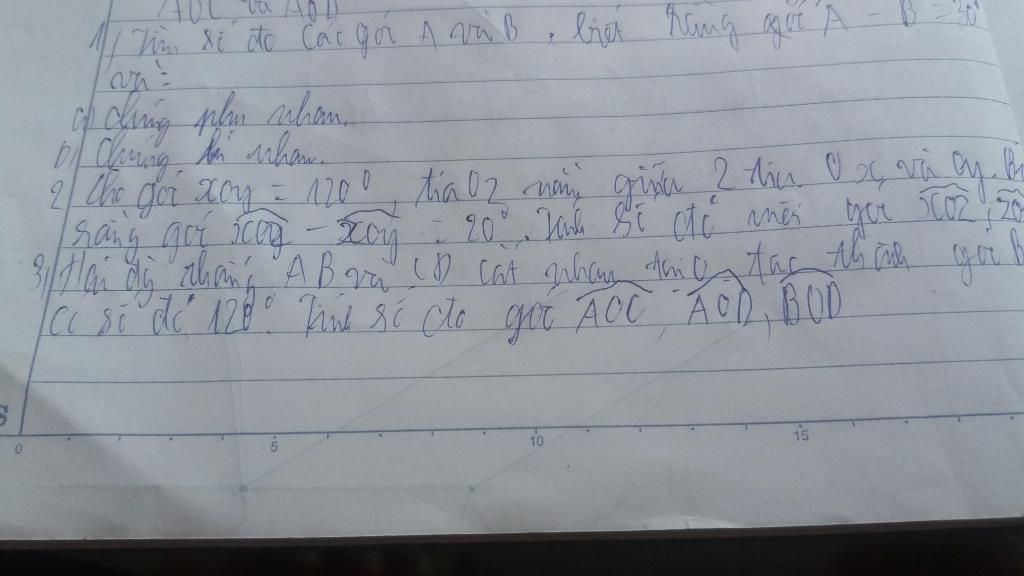 AOC và AOD
1, Tìm số đo các góc A và B, biết rằng góc A - B = 30°
và:
a) chúng phụ nhau.
b, chúng bù nhau.
2 Cho góc xoy = 120°, tia Oz nằm giữa 2 tia Ox và oy. Bi
rằng góc xoy - xoy = 20°. Tính số đo mỗi góc xoz, zo
3, Hai đg thẳng AB và CD cắt nhau tại O tạo thành góc B
có số đo 120°. Tính số đo góc AOC, AOD, BOD
S
0 5 10 15